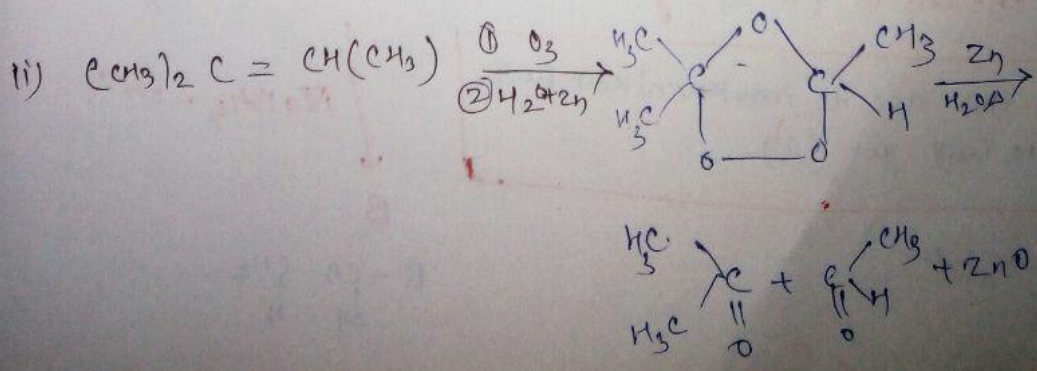 ii) (CH3)2 C = CH(CH3) ① O3 ② H2O+Zn H3C H3C C O C CH3 H O O Zn H2O Δ
H3C H3C C O + C CH3 H O + ZnO